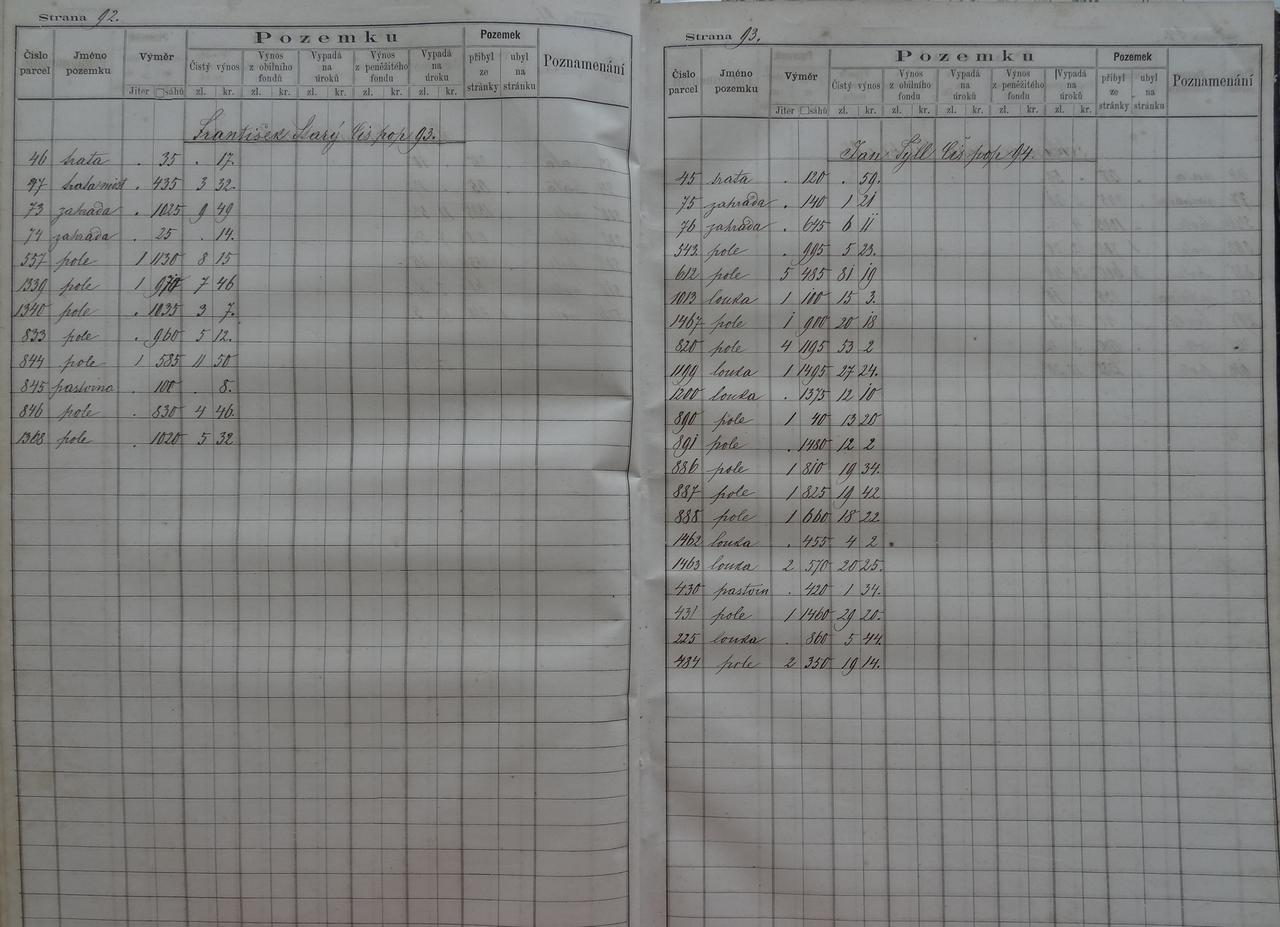 Strana 92.
Číslo parcel Jméno pozemku Výměr Pozemku Pozemek Poznamenání
Čistý výnos Výnos z obilního fondu Vypadá na úroků Výnos z peněžitého fondu Vypadá na úroku přibyl ze stránky ubyl na stránku
Jiter □sáhů zl. kr. zl. kr. zl. kr. zl. kr. zl. kr.
František Starý Čís pop 93.
46 . 35 . 17.
. 435 3 32.
73 zahrada . 1025 9 49
74 zahrada . 25 . 14.
557 pole 1 1130 8 15
1339 pole 1 7 46
1340 pole . 1035 3 7.
833 pole . 960 5 12.
844 pole 1 585 11 50
845 pastvina . 100 . 8.
846 pole . 830 4 46.
1368 pole . 1020 5 32
Strana 93.
Číslo parcel Jméno pozemku Výměr Pozemku Pozemek Poznamenání
Čistý výnos Výnos z obilního fondu Vypadá na úroků Výnos z peněžitého fondu Vypadá na úroků přibyl ze stránky ubyl na stránku
Jiter □sáhů zl. kr. zl. kr. zl. kr. zl. kr. zl. kr.
Jan Sýll Čís pop 94.
45 . 120 . 59.
75 zahrada . 140 1 21
76 zahrada . 645 6 11
543. pole . 995 5 23.
612 pole 5 485 81 19
1013 louka 1 100 15 3.
1467 pole 1 900 20 18
820 pole 4 1195 53 2
1199 louka 1 1495 27 24.
1200 louka . 1375 12 10
890 pole 1 40 13 20
891 pole . 1480 12 2
886 pole 1 810 19 34.
887 pole 1 825 19 42
888 pole 1 660 18 22
1462 louka . 455 4 2
1463 louka 2 570 20 25.
430 pastvin . 420 1 34.
431 pole 1 1460 29 20.
225 louka . 860 5 44.
484 pole 2 350 19 14.